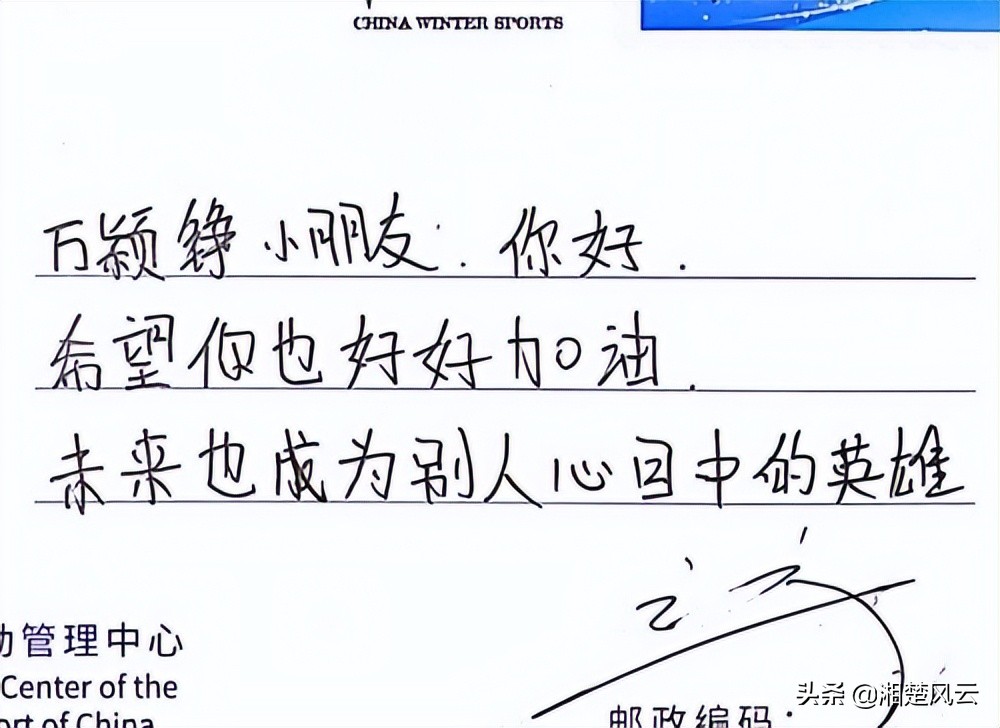 CHINA WINTER SPORTS
万颖铮小朋友:你好.
希望你也好好加油.
未来也成为别人心目中的英雄
动管理中心
Center of the
ort of China
邮政编码:
头条 @湘楚风云